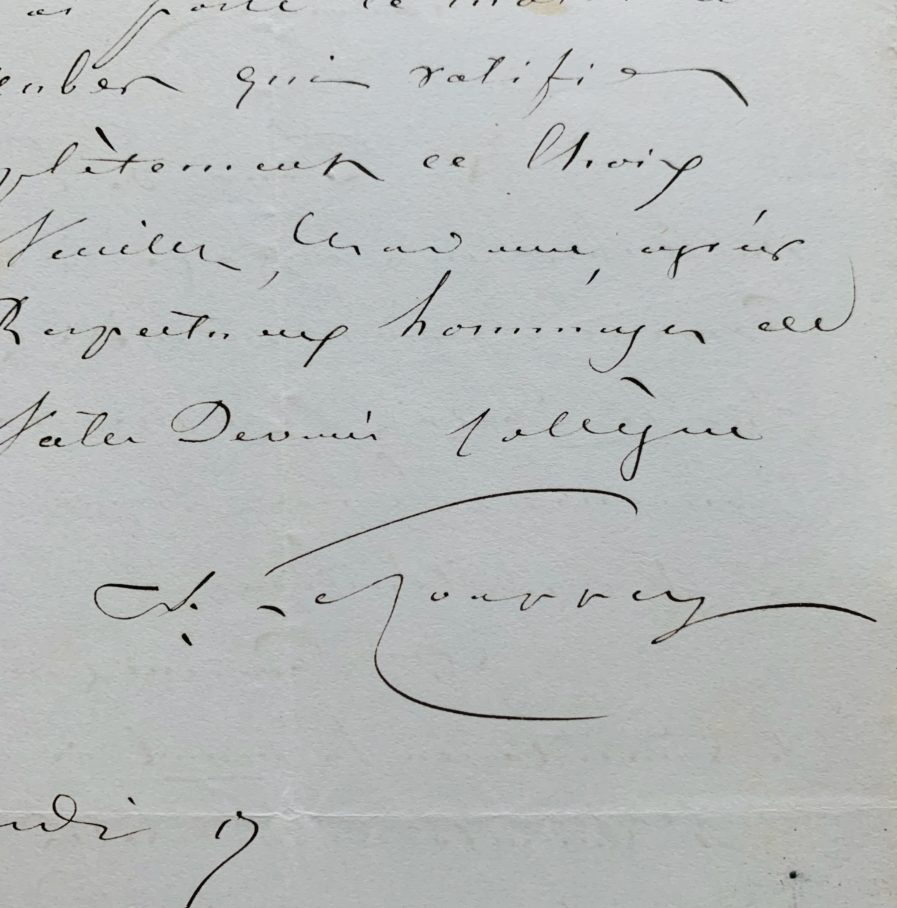 porte le
qui ratifie
plètement ce Choix
Veuillez, Madame, agréer
Respectueux hommages de
Votre Dévoué Collègue
A. Le Rouxxey
di 17